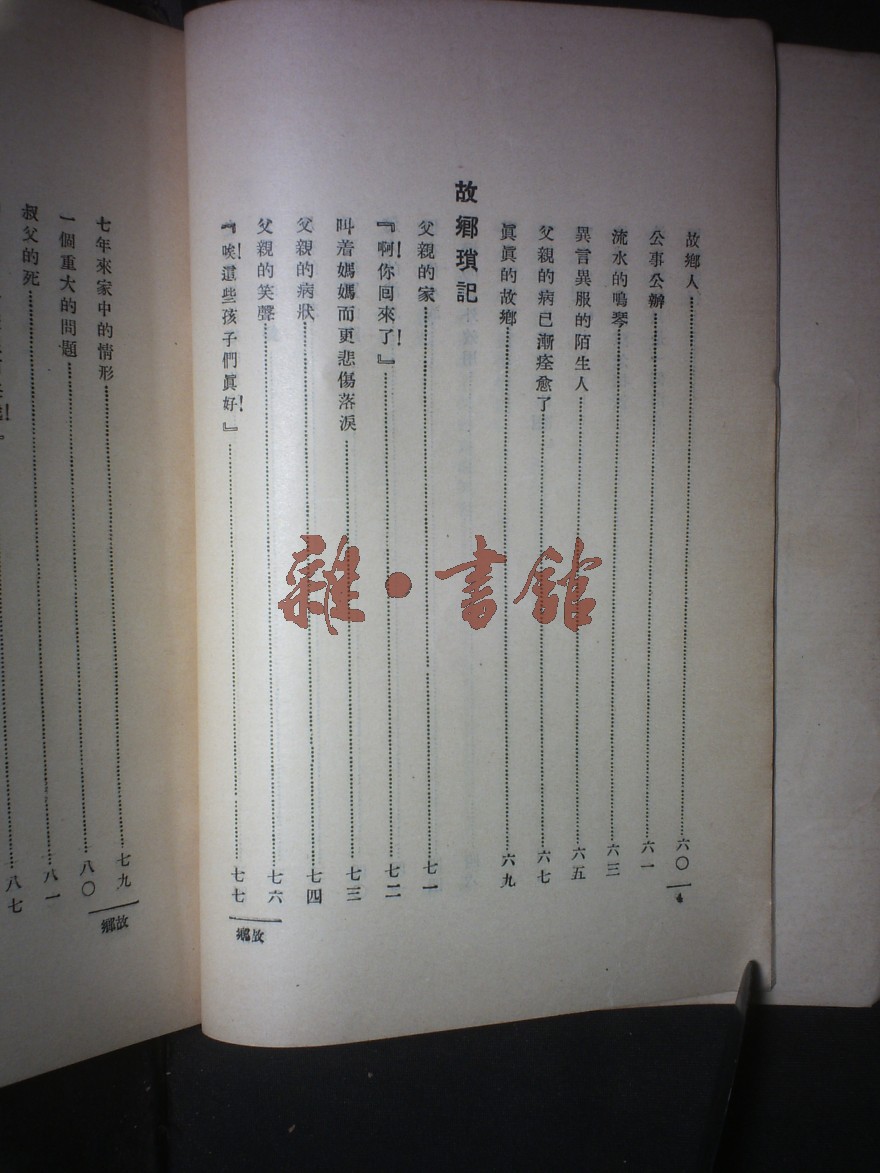 故鄉人 六〇
公事公辦 六一
流水的鳴琴 六三
異言異服的陌生人 六五
父親的病已漸痊愈了 六七
眞眞的故鄉 六九
故鄉瑣記
父親的家 七一
『啊！你囘來了！』 七二
叫着媽媽而更悲傷落淚 七三
父親的病狀 七四
父親的笑聲 七六
『唉！這些孩子們眞好！』 七七
故鄉
七年來家中的情形 七九
一個重大的問題 八〇
叔父的死 八一
八七
故鄉
雜·書館